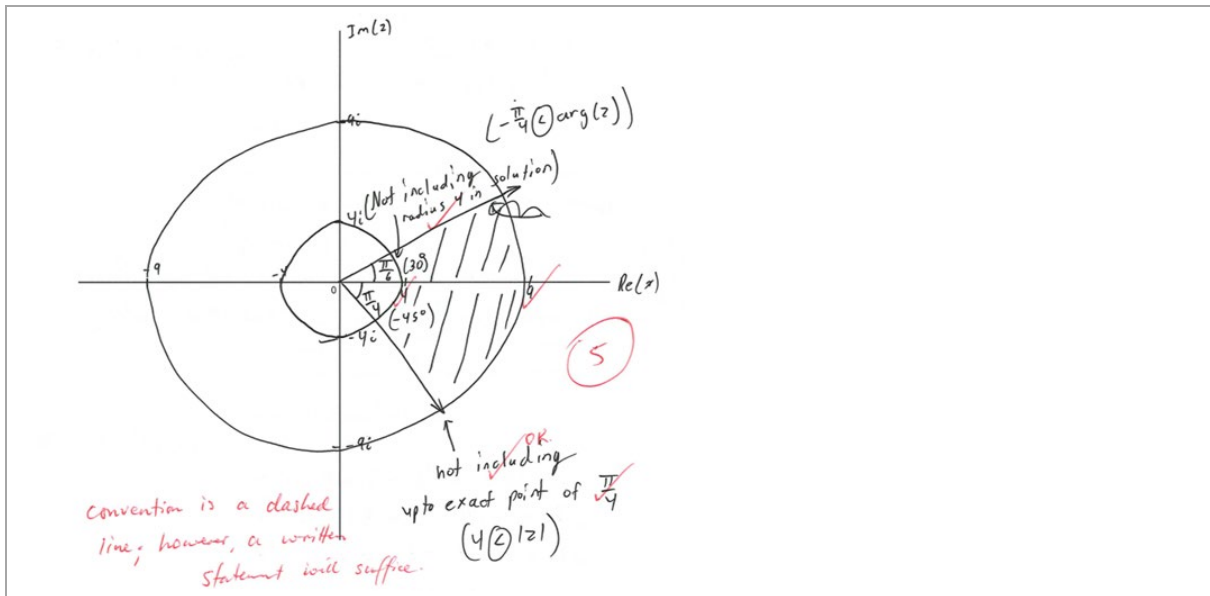 Im(z)
9i
(-π/4 < arg(z))
4i (Not including radius 4 in solution)
-9
-4
0
π/6
(30°)
4
9
Re(z)
π/4
(-45°)
-4i
5
-9i
OK
not including
upto exact point of π/4
(4 < |z|)
convention is a dashed
line; however, a written
statement will suffice.